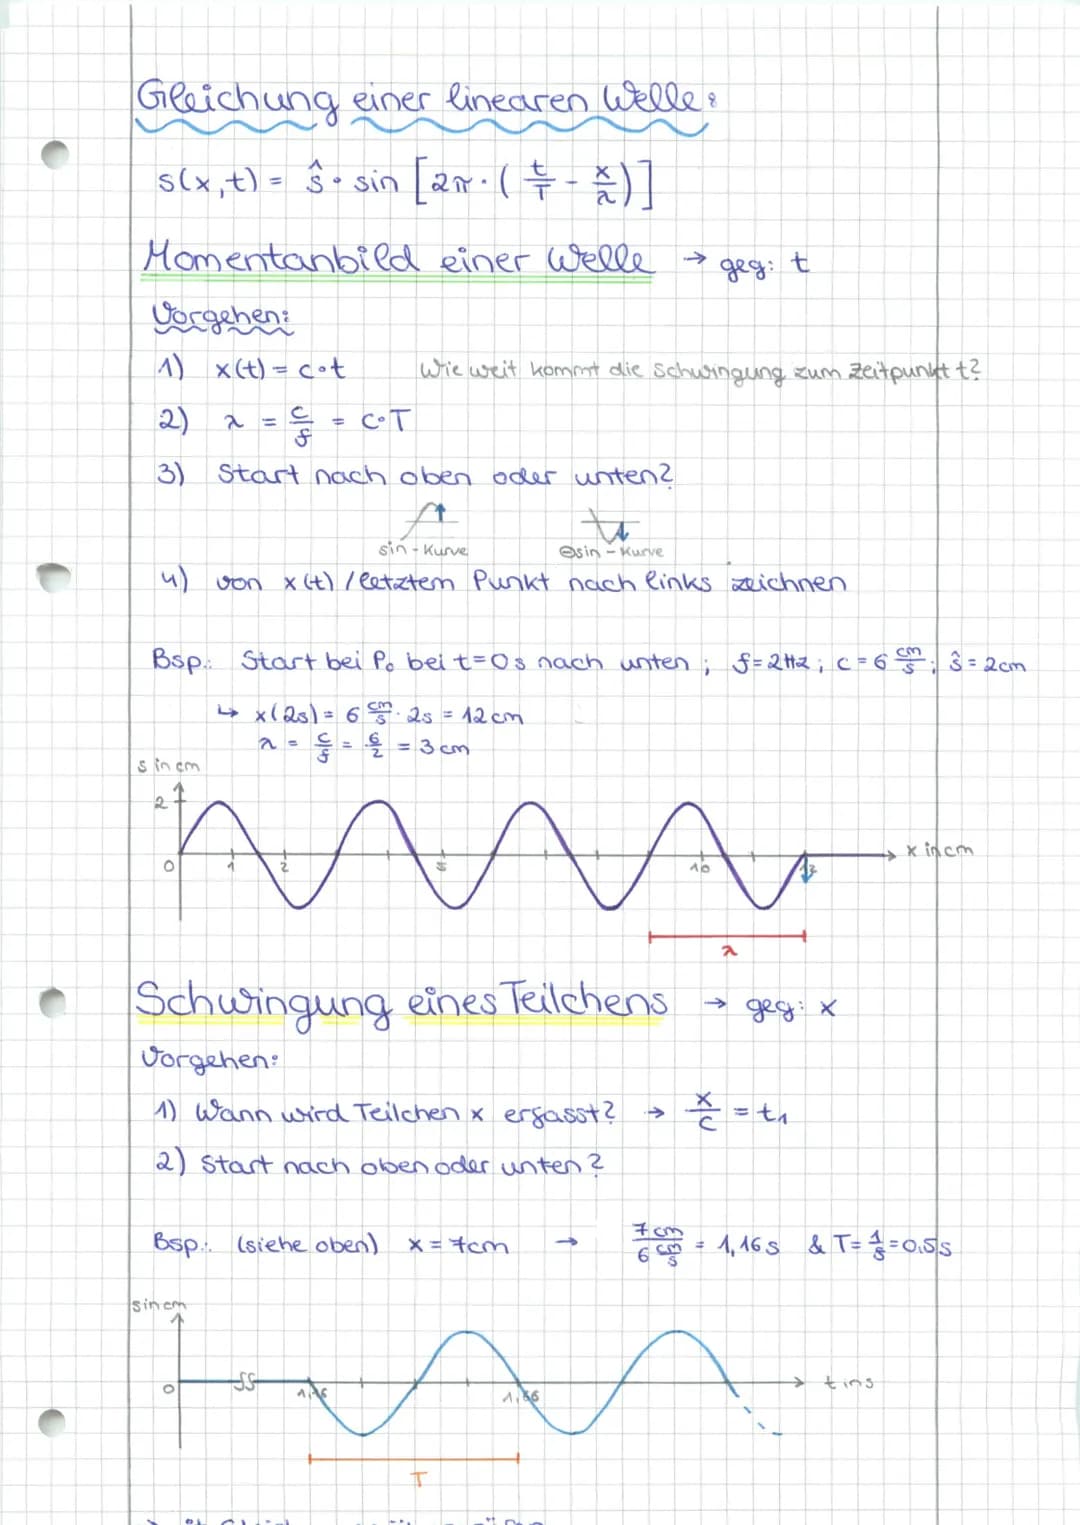 Gleichung einer linearen Welle:
s(x,t) = ŝ · sin [2π · (t/T - x/λ)]
Momentanbild einer Welle → geg: t
Vorgehen:
1) x(t) = c·t Wie weit kommt die Schwingung zum Zeitpunkt t?
2) λ = c/f = c·T
3) Start nach oben oder unten?
sin-Kurve ⊖sin-Kurve
4) von x(t) / letztem Punkt nach links zeichnen
Bsp.: Start bei P₀ bei t=0s nach unten ; f=2Hz ; c = 6 cm/s ; ŝ = 2cm
↳ x(2s) = 6 cm/s · 2s = 12cm
λ = c/f = 6/2 = 3 cm
s in cm
2
0 1 2 5 10 12 x in cm
λ
Schwingung eines Teilchens → geg: x
Vorgehen:
1) Wann wird Teilchen x erfasst? → x/c = t₁
2) Start nach oben oder unten?
Bsp.: (siehe oben) x = 7cm → 7cm / 6 cm/s = 1,16s & T = 1/f = 0,5s
s in cm
0 1,16 1,66 t in s
T